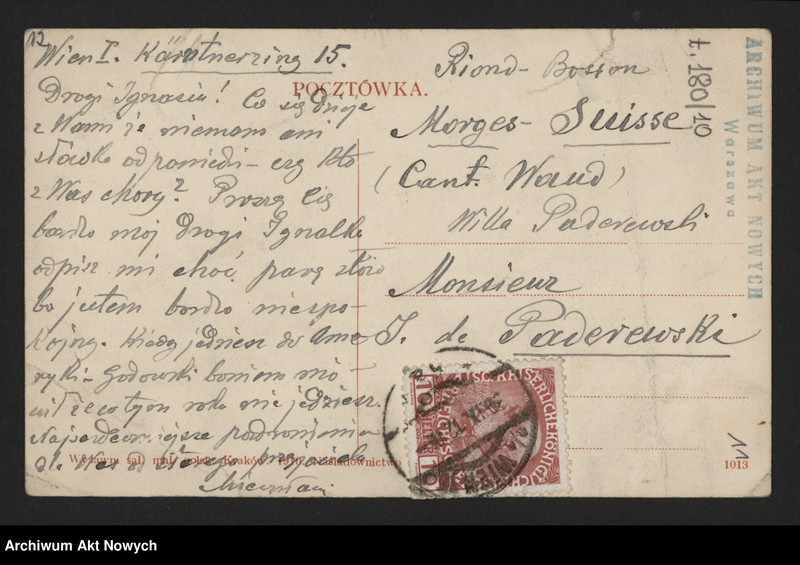 12
Wien I. Kärntnerring 15.
POCZTÓWKA.
Drogi Ignasiu! Co się dzieje
z Wami że niemam ani
słówka odpowiedzi – czy kto
z Was chory? Proszę Cię
bardzo mój Drogi Ignaśku
odpisz mi choć parę słów
bo jestem bardzo niespo-
kojny. Kiedy jedziesz do Ame-
ryki – Godowski bowiem mó-
wił że w tym roku nie jedziesz.
Najserdeczniejsze pozdrowienia
dla Was od starego przyjaciela
Riond-Bosson
Morges – Suisse
(Cant. Waud)
Willa Paderewski
Monsieur
I. de Paderewski
t. 180/10
ARCHIWUM AKT NOWYCH
Warszawa
WIEN
11
Wydawn. sal. mal. polsk. Kraków 1910.
1013
Archiwum Akt Nowych